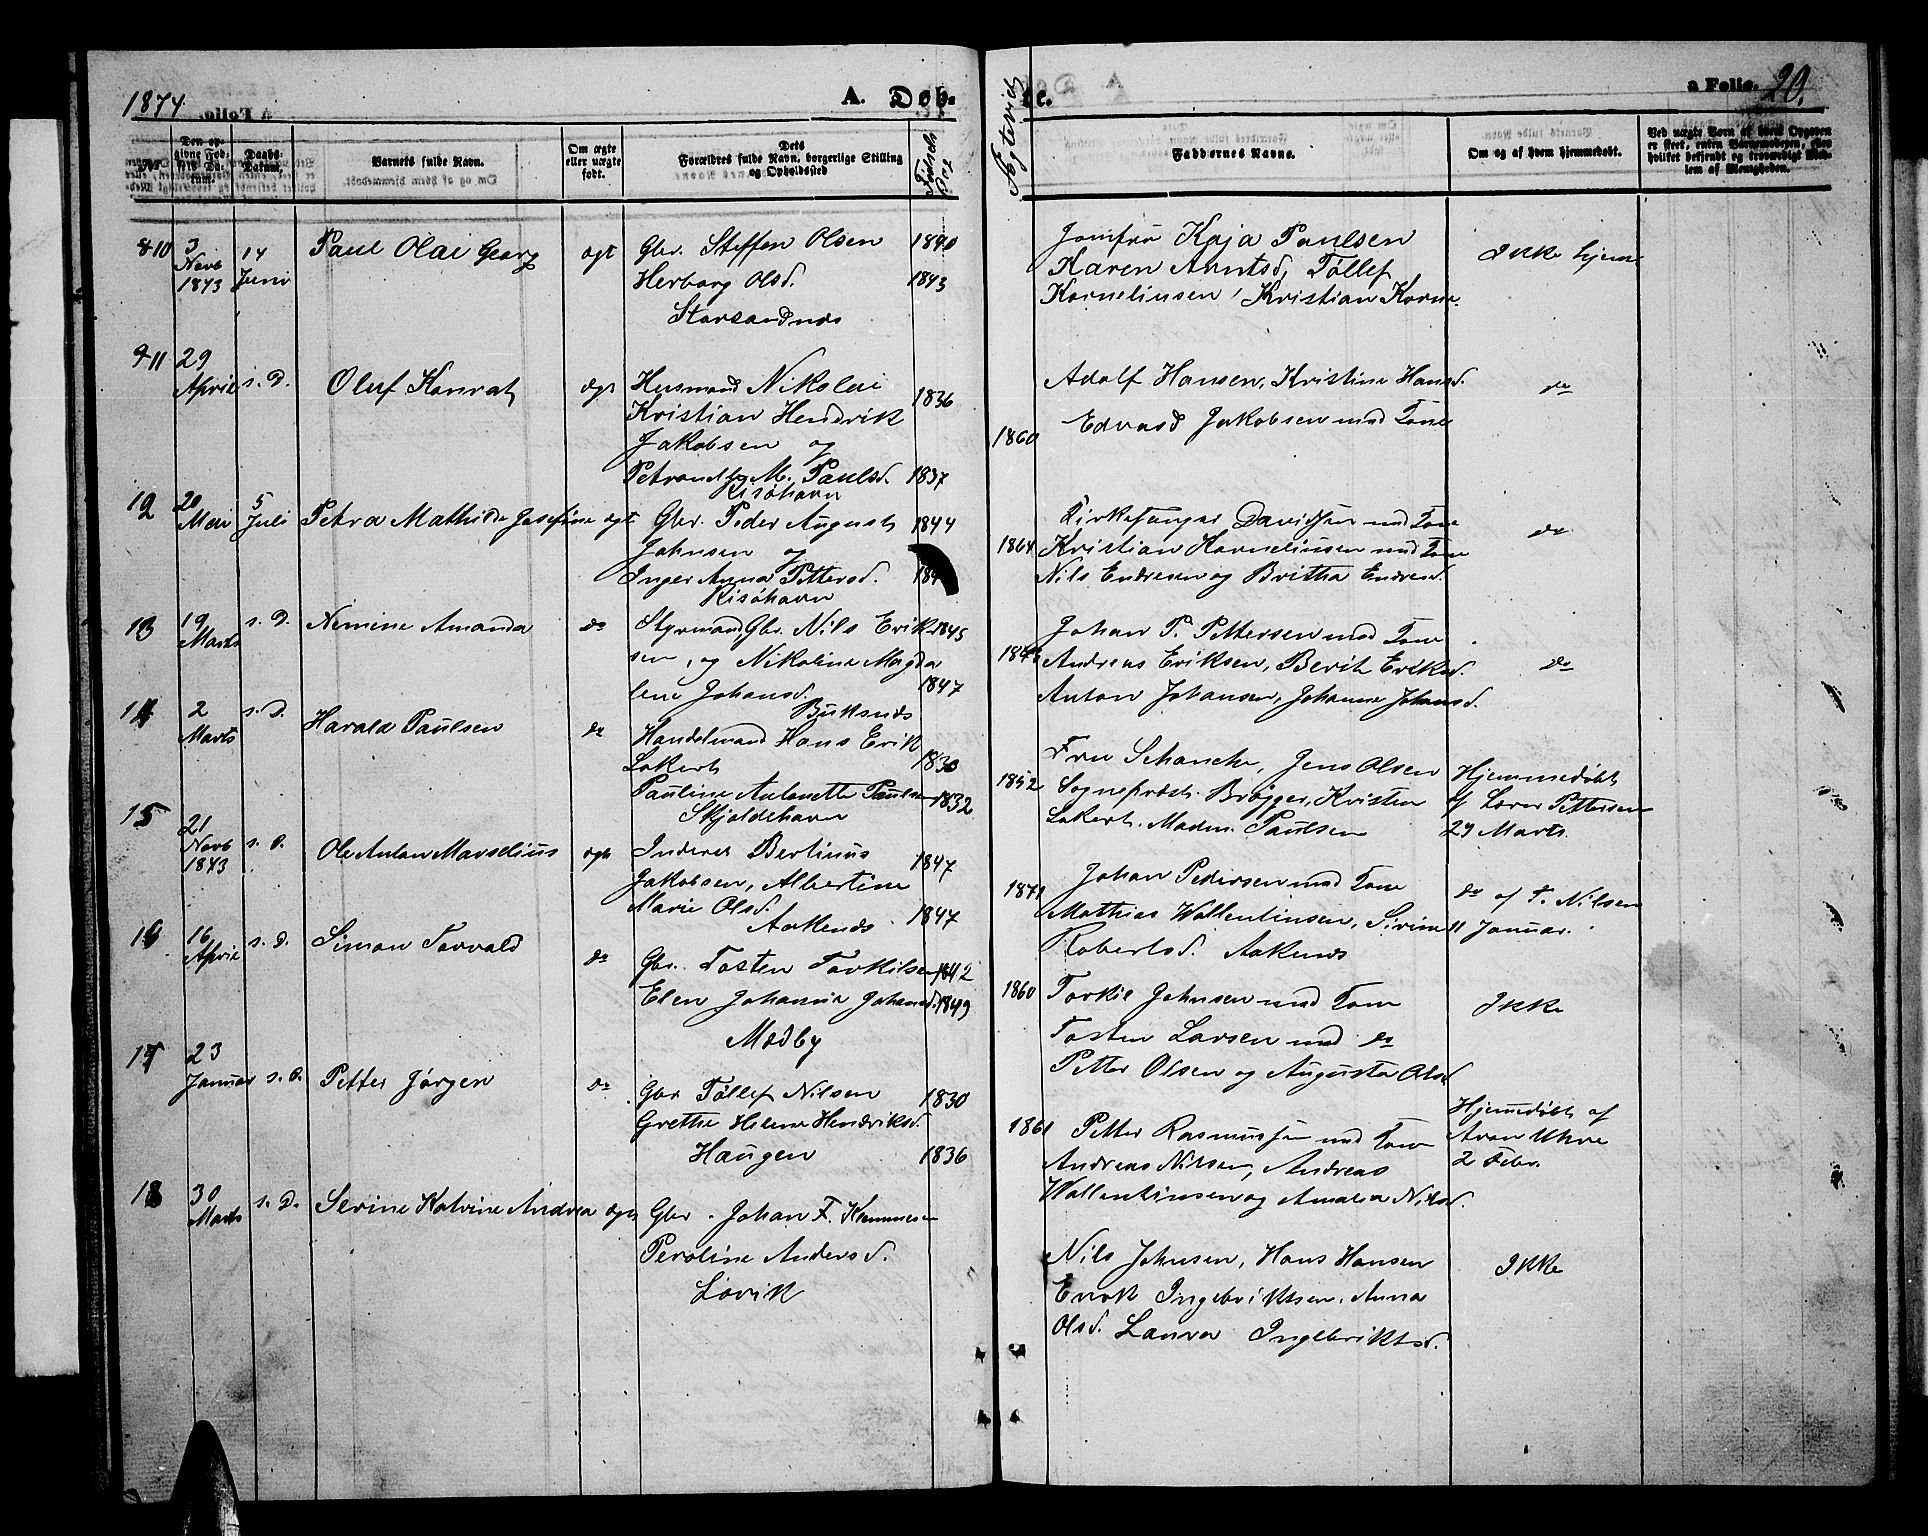 1874.
A. Døb-
te.
a Folio. 20.
No.
Den opgivne Fødsels Datum.
Daabs-Datum.
Barnets fulde Navn.
Om ægte eller uægte født.
Dets Forældres fulde Navn, borgerlige Stilling og Opholdssted
Fødsels
Faddernes Navne.
Om og af hvem hjemmedøbt.
10
3 Novb 1873
14 Juni
Paul Olai Georg
ægt
Gbr. Steffen Olsen
1840
Herborg Olsd.
1843
Storsandnds
Jomfru Kaja Paulsen
Karen Arntsd, Tøllef
Kornelinsen, Kristian Korne.
Ikke hjem
11
29 April
s. D.
Oluf Konrat
ægt
Husmand Nikolai
1836
Kristian Hendrik
Jakobsen og
M. Paulsd.
1837
Risøhavn
1860
Adolf Hansen, Kristine Hansd.
Edvard Jakobsen med Kone
do
12
20 Mai
5 Juli
Petra Mathilde Josefine
ægt
Gbr. Peder August
1844
Johnsen og
Inger Anna Pettersd.
Risøhavn
1864
Kirkesanger Davidsen med Kone
Kristian Korneliusen med Kone
Nils Endresen og Britha Endresd.
do
13
19 Marts
s. D.
Nimine Amanda
do
Styrmand, Gbr. Nils Erik
1845
sen, og Nikoline Magda
lena Johansd.
1847
Buksnds
Johan P. Pettersen med Kone
Andreas Eriksen, Berit Eriksd.
Anton Johansen, Johanne Johansd.
do
14
2 Marts
s. D.
Harald Paulsen
do
Handelsmand Hans Erik
Lokert
1830
Pauline Antonette Paulsen
1832
Skjoldehavn
1852
Fru Schanche, Jens Olsen
Sogneprest Brøgger, Kristen
Lokert. Madm. Paulsen
Hjemmedøbt
af Lærer Pettersen
29 Marts.
15
21 Novb 1873
s. D.
Ole Anton Marselius
ægt
Inderst Bertinus
1847
Jakobsen, Albertine
Marie Olsd.
1847
Aaknds
1871
Johan Pedersen med Kone
Mathias Wallentinsen, Sirine
Robertsd. Aaknds
do af T. Nilsen
11 Januar.
16
16 April
s. D.
Simon Torvald
do
Gbr. Tosten Torkilsen
1842
Elen Johanna Johansd.
1849
Medby
1860
Torkil Johnsen med Kone
Tosten Larsen med do
Petter Olsen og Augusta Olsd
Ikke
17
23 Januar
s. D.
Petter Jørgen
do
Gbr Tøllef Nilsen
1830
Grethe Helene Hendriksd.
Haugen
1836
1861
Petter Rasmussen med Kone
Andreas Nilsen, Andreas
Wallentinsen og Amalia Nilsd.
Hjemedøbt af
Aron Uhre
2 Febr.
18
30 Marts
s. D.
Serine Katrine Andrea
ægt
Gbr. Johan F.
Peroline Andersd.
Lovik
Nils Johnsen, Hans Hansen
Enok Ingebriktsen, Anna
Olsd. Laura Ingebriktsd.
Ikke